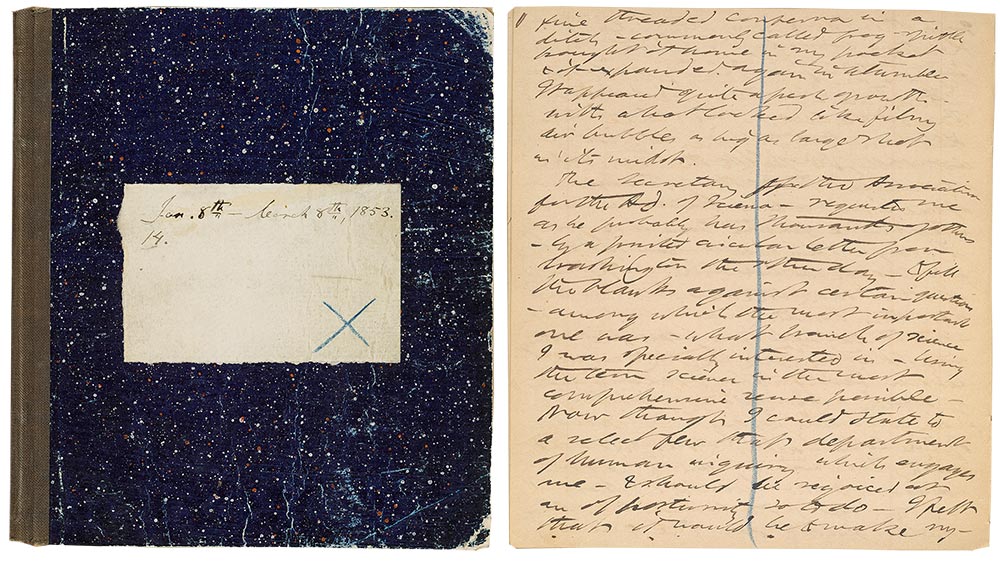 Jan. 8th – March 8th, 1853.
14.
fine threaded conferva in a
ditch – commonly called frog-spittle
brought it home in my pocket
& it expanded again in a tumbler
It appeared quite a fresh growth
with what looked like filmy
air bubbles as big as large shot
in its midst.
The Secretary of the Association
for the Ad. of Science – requested me
as he probably has thousands of others
– by a printed circular letter from
Washington the other day – to fill
the blanks against certain questions
– among which the most important
one was – what branch of science
I was specially interested in – using
the term science in the most
comprehensive sense possible –
Now though I could state to
a select few that department
of human inquiry which engages
me – & should be rejoiced at
an opportunity to do so – I felt
that it would be to make my-